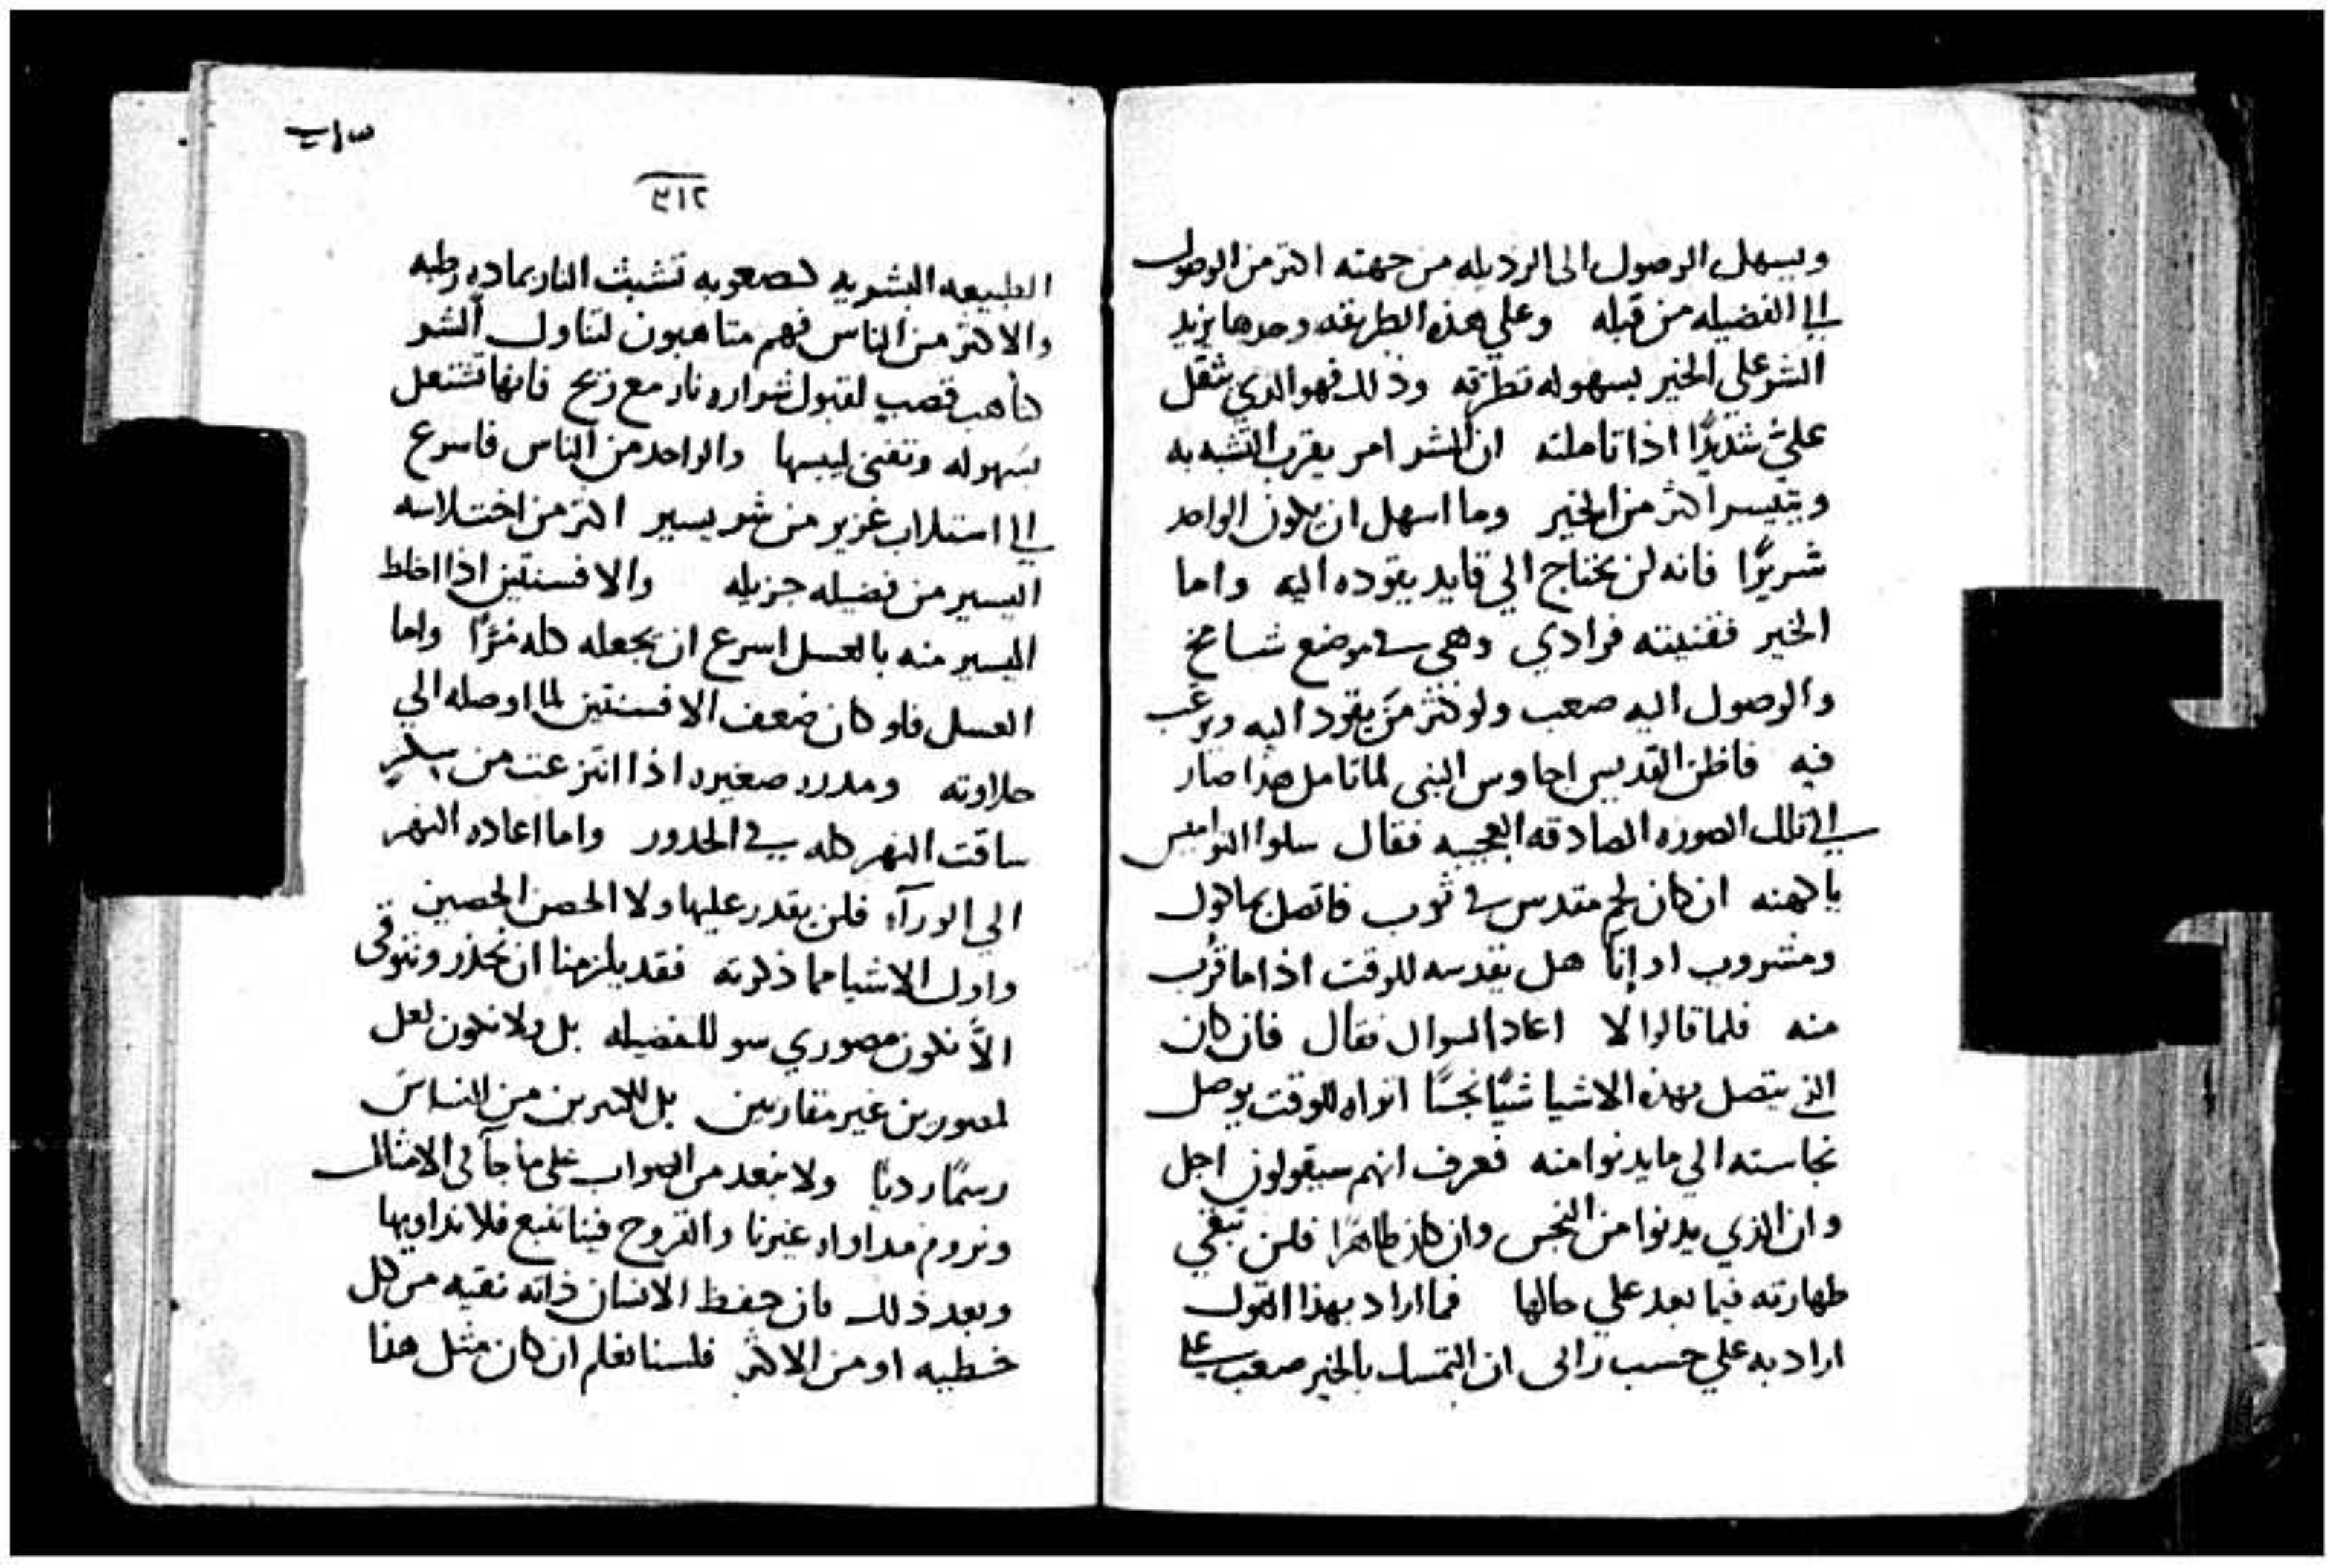 ويسهل الوصول الى الرذيله من جهته اكثر من الوصول
الي الفضيله من قبله وعلي هذه الطريقه وحدها يزيد
الشر على الخير بسهوله تطرقه وذلك فهو الذي يثقل
علي شديدًا اذا تاملته ان الشر امر يقرب التشبه به
ويتيسر اكثر من الخير وما اسهل ان يكون الواحد
شريرًا فانه لن يحتاج الي قايد يقوده اليه واما
الخير فقنيته فرادي وهي في موضع شامخ
والوصول اليه صعب ولو كثر من يقود اليه ويرغب
فيه فاظن القديس اجاوس النبي لما تامل هذا صار
الي تلك الصوره الصادقه العجيبه فقال سلوا النواميس
يا كهنه ان كان لحم مقدس في ثوب فاتصل بماكول
ومشروب او إنآ هل يقدسه للوقت اذا ما قرب
منه فلما قالوا لا اعاد السوال فقال فان كان
الذي يتصل بهذه الاشيا شيًا نجسًا اتراه للوقت يوصل
نجاسته الي ما يدنوا منه فعرف انهم سيقولون اجل
وان الذي يدنوا من النجس وان كان طاهرًا فلن تبقي
طهارته فيما بعد علي حالها فما اراد بهذا القول
اراد به علي حسب رائى ان التمسك بالخير صعب علي
٢١٣
الطبيعه البشريه كصعوبه تشبث النار بماده رطبه
والاكثر من الناس فهم متاهبون لتناول الشر
كتاهب قصب لقبول شراره نار مع ريح فانها تشتعل
بسهوله وتفنى ليبسها والواحد من الناس فاسرع
الي استلاب غزير من شر يسير اكثر من اختلاسه
اليسير من فضيله جزيله والافسنتين اذا اخلط
اليسير منه بالعسل اسرع ان يجعله كله مرًا واما
العسل فلو كان ضعف الافسنتين لما اوصله الي
حلاوته ومدره صغيره اذا انتزعت من سكر
ساقت النهر كله في الحدور واما اعاده النهر
الي الورآء فلن يقدر عليها ولا الحصن الحصين
واول الاشيا مما ذكرته فقد يلزمنا ان نحذر ونتوقى
الاَّ نكون مصوري سو للفضيله بل ولا نكون لعل
لمصورين غير مقاربين بل لكثيرين من الناس
رسمًا رديًا ولا نبعد من الصواب على ما جآ في الامثال
ونروم مداواه غيرنا والقروح فينا تنبع فلا نداويها
وبعد ذلك فان حفظ الانسان ذاته نقيه من كل
خطيه او من الاكثر فلسنا نعلم ان كان مثل هذا